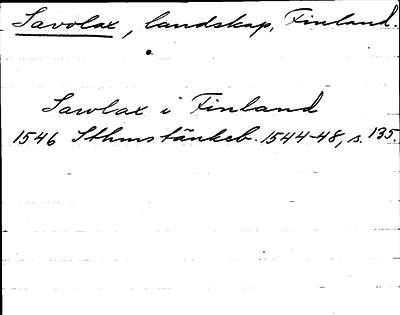 Savolax, landskap, Finland.
Sawlax i Finland
1546 Sthms tänkeb. 1544-48, s. 135.